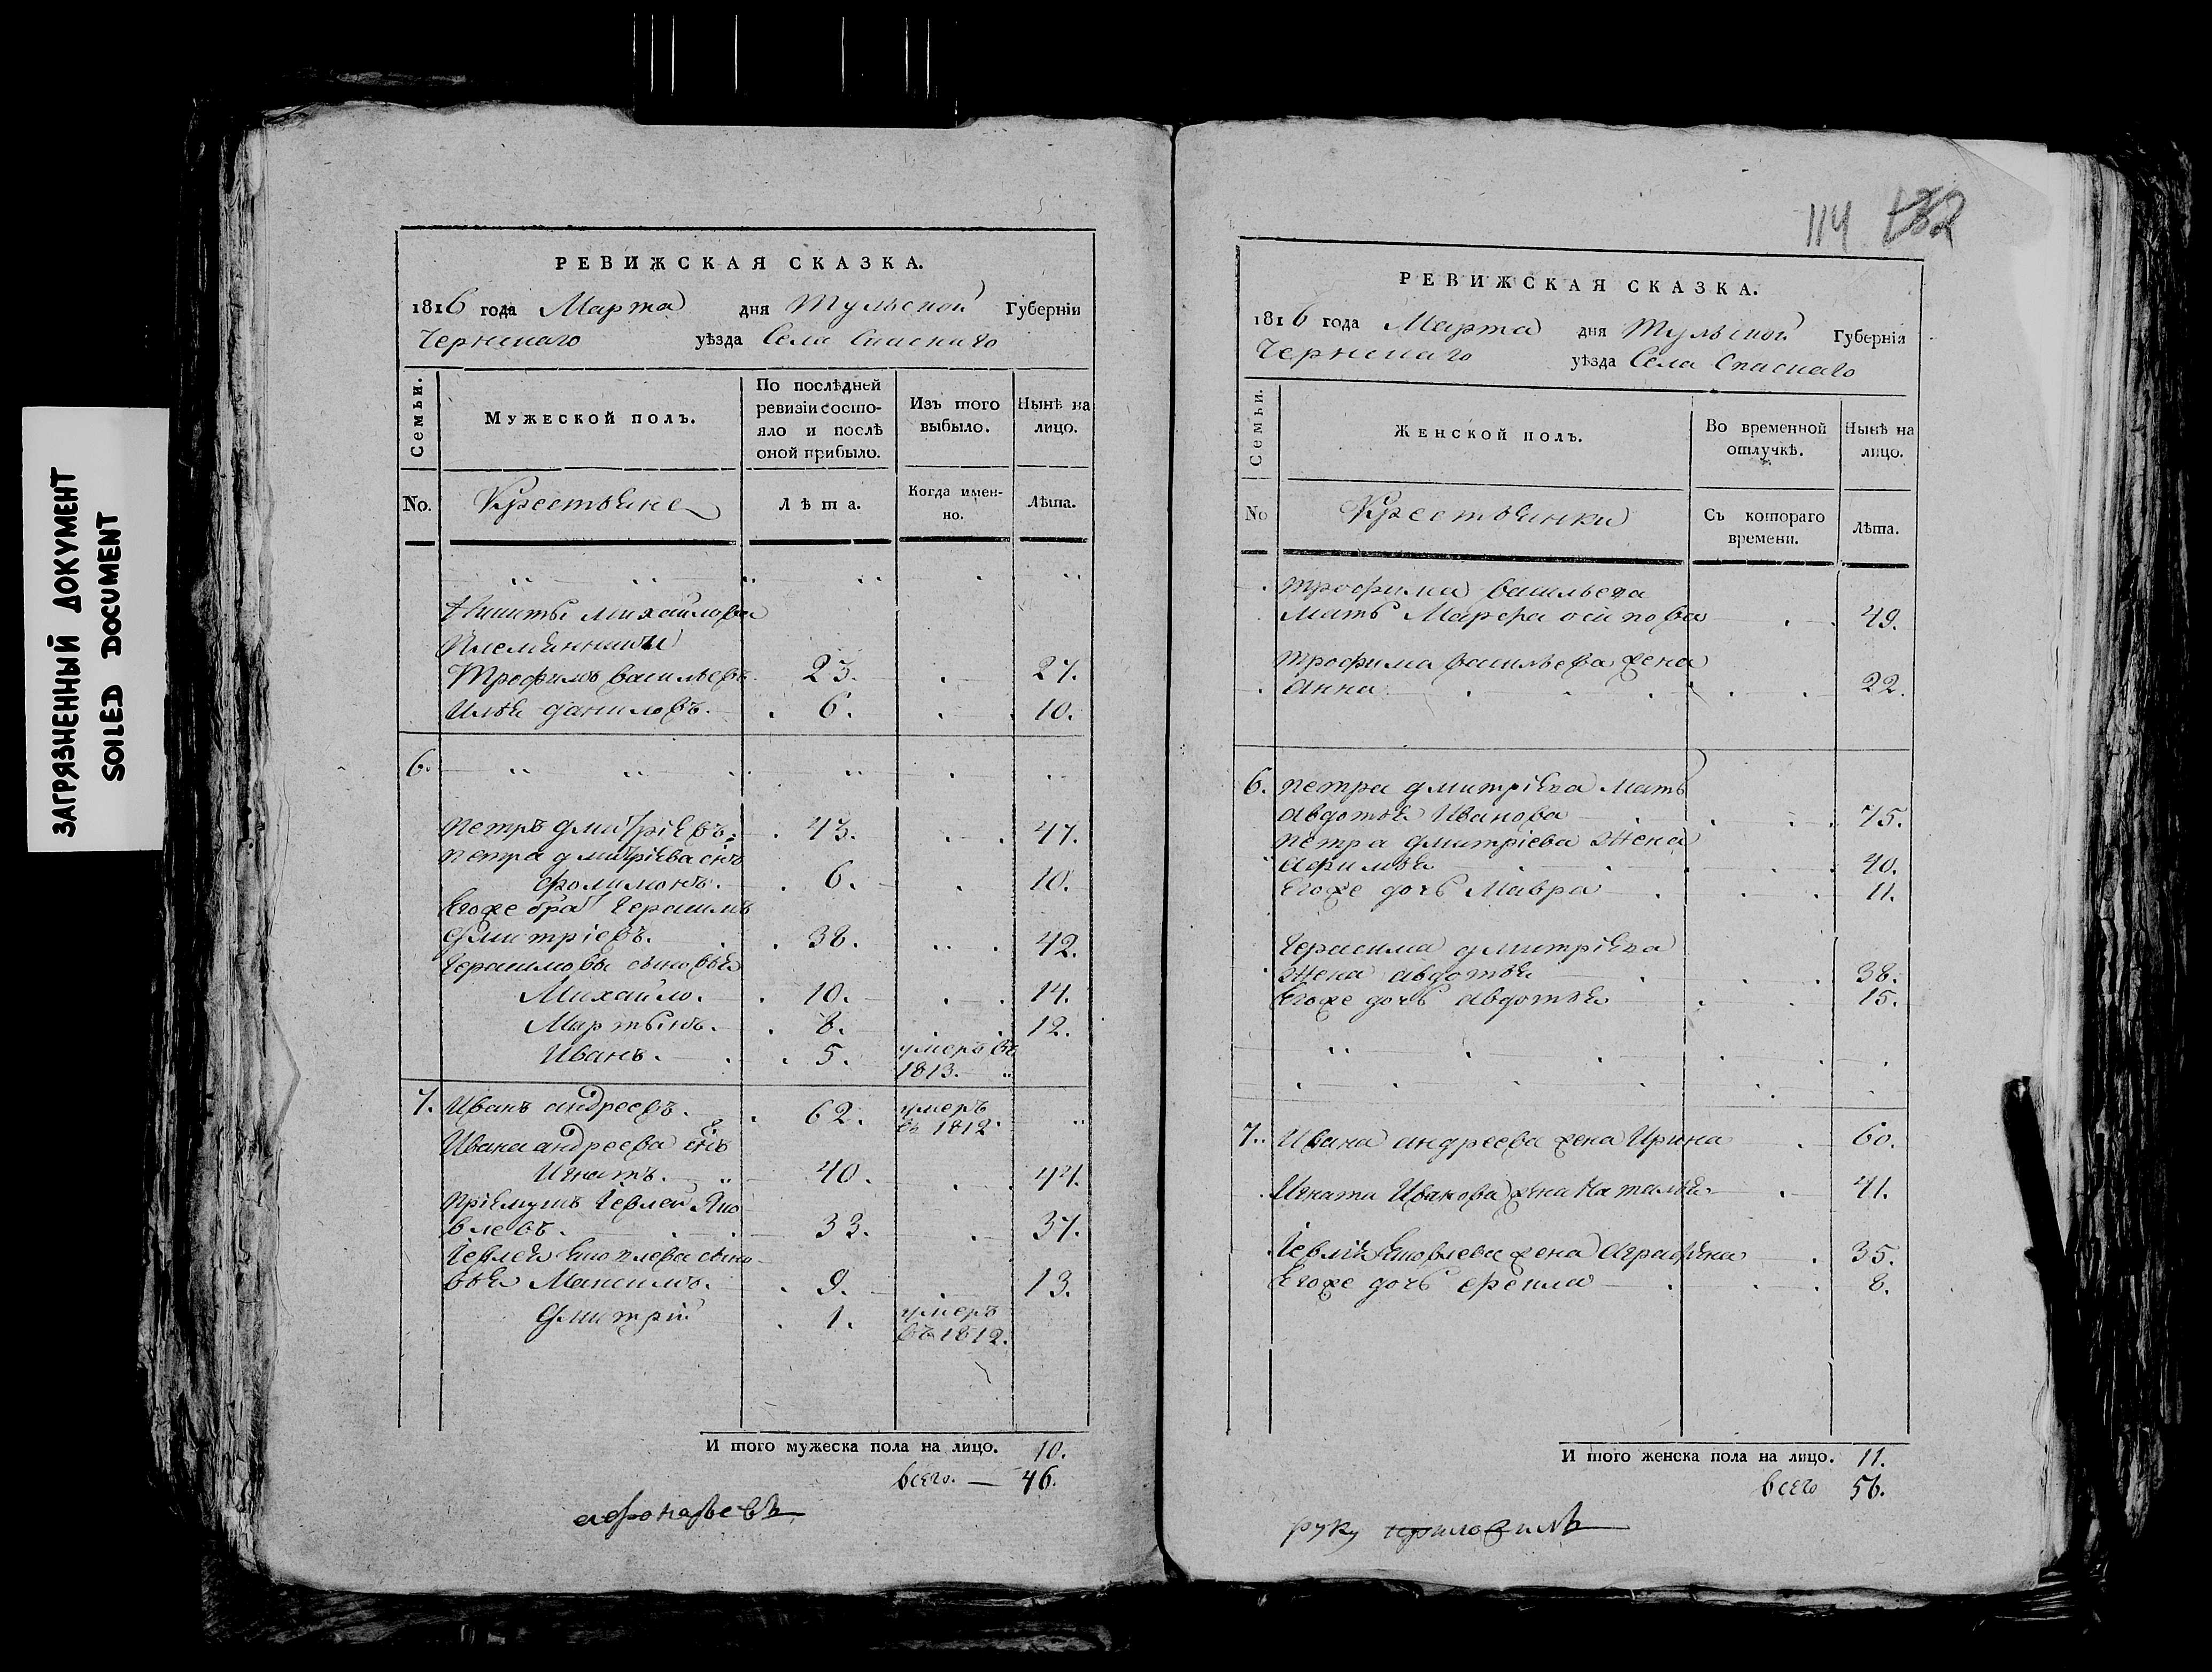 ЗАГРЯЗНЕННЫЙ ДОКУМЕНТ
SOILED DOCUMENT
РЕВИЖСКАЯ СКАЗКА.
1816 года Марта дня Тульской Губерніи
Чернскаго уѣзда Села Спаскаго
Семьи. Мужеской полъ. По послѣдней ревизіи состояло и послѣ оной прибыло. Изъ того выбыло. Нынѣ на лицо.
No. Крестьяне Лѣта. Когда именно. Лѣта.
Никиты михайлова
Племянники
Трофимъ васильевъ. 23. 27.
Илья даниловъ. 6. 10.
6.
Петръ дмитріевъ. 43. 47.
петра дмитріева сынъ
фолимонъ. 6. 10.
Егоже братъ Герасимъ
дмитріевъ. 38. 42.
Герасимовы сыновья
Михайло. 10. 14.
Мартынъ. 8. 12.
Иванъ. 5. умеръ въ 1813.
7. Иванъ андреевъ. 62. умеръ въ 1812.
Ивана андреева сынъ
Игнатъ. 40. 44.
Пріемушъ Іевлей Яко
влевъ. 33. 37.
Іевлея Яковлева сыно
вья Максимъ. 9. 13.
Дмитрій 1. умеръ въ 1812.
И того мужеска пола на лицо. 10.
всего. — 46.
афонасьевъ
114 132
РЕВИЖСКАЯ СКАЗКА.
1816 года Марта дня Тульской Губерніи
Чернскаго уѣзда Села Спаскаго
Семьи. Женской полъ. Во временной отлучкѣ. Нынѣ на лицо.
No Крестьянки Съ котораго времени. Лѣта.
Трофима васильева
мать Марфа осипова 49.
Трофима васильева жена
Анна 22.
6. петра дмитріева мать
авдотья Иванова 75.
петра дмитріева жена
афимья 40.
Егоже дочь Мавра 11.
Герасима дмитріева
жена авдотья 38.
Егоже дочь авдотья 15.
7. Ивана андреева жена Ирина 60.
Игната Иванова жена Наталья 41.
Іевлія Яковлева жена Аграфена 35.
Егоже дочь фекла 8.
И того женска пола на лицо. 11.
всего 56.
руку приложилъ